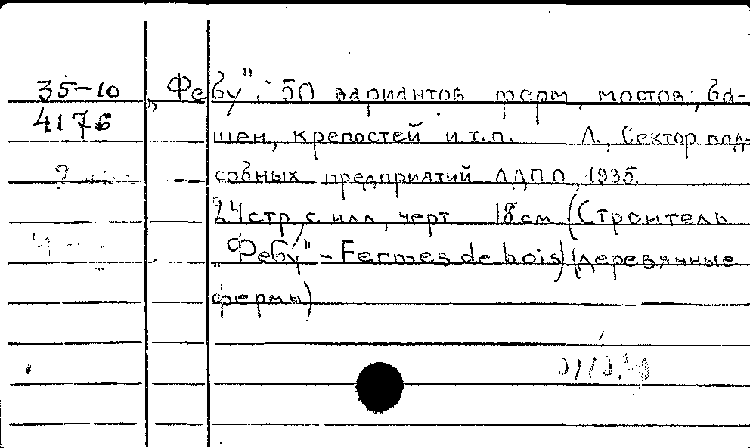 35-10 „Фебу". 50 вариантов ферм, мостов, ба-
4176 шен, крепостей и.т.п. Л., Сектор под-
собных предприятий ЛДПО, 1935.
24 стр. с илл., черт 18 см (Строитель
„Фебу" - Fermes de bois) (деревянные
фермы)